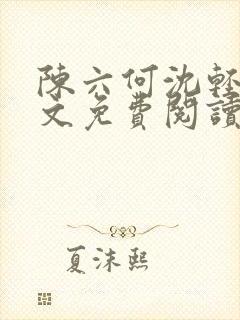 陳六何沈輕
文免費閱讀
夏沫熙